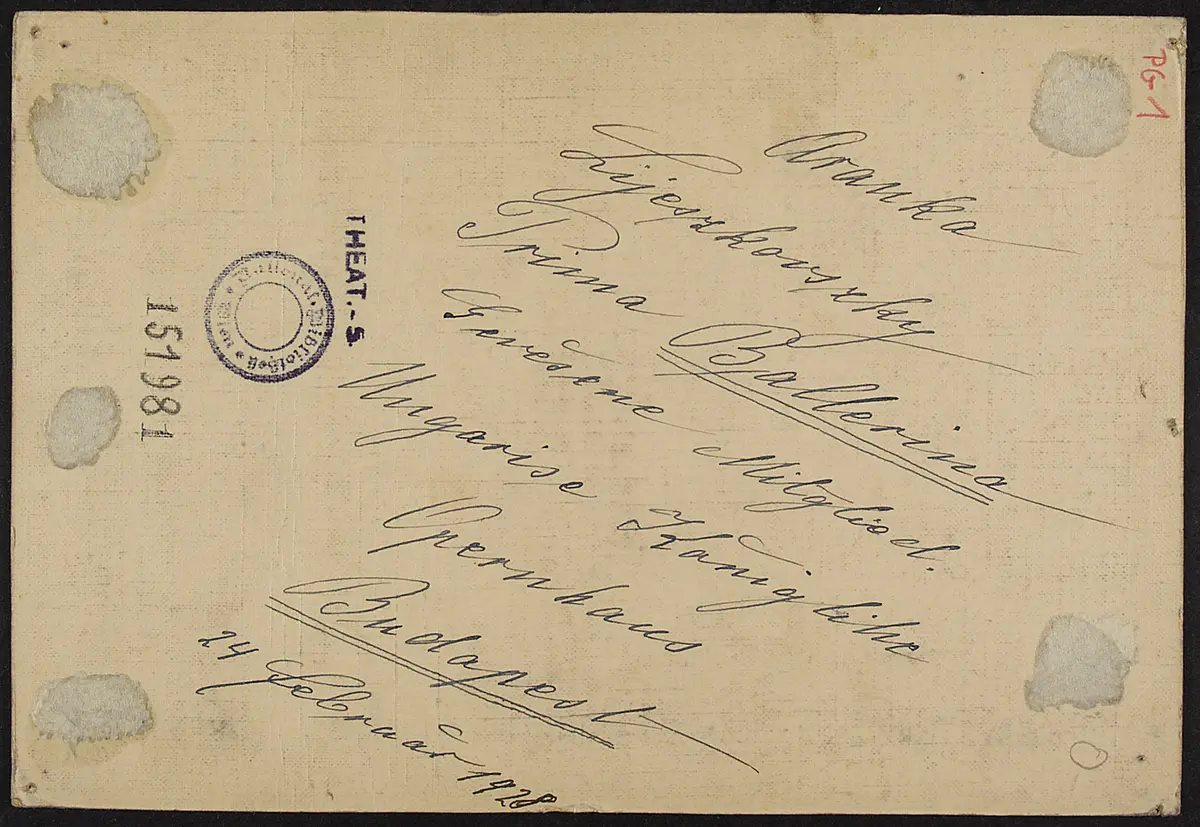 Aranka
Lijeszkovszky
Prima Ballerina
Gevesene Mitglied.
Ungarise Königlihe
Opernhaus
Budapest
24 Februar 1928
THEAT.-S.
National-Bibliothek
151981
PG-1